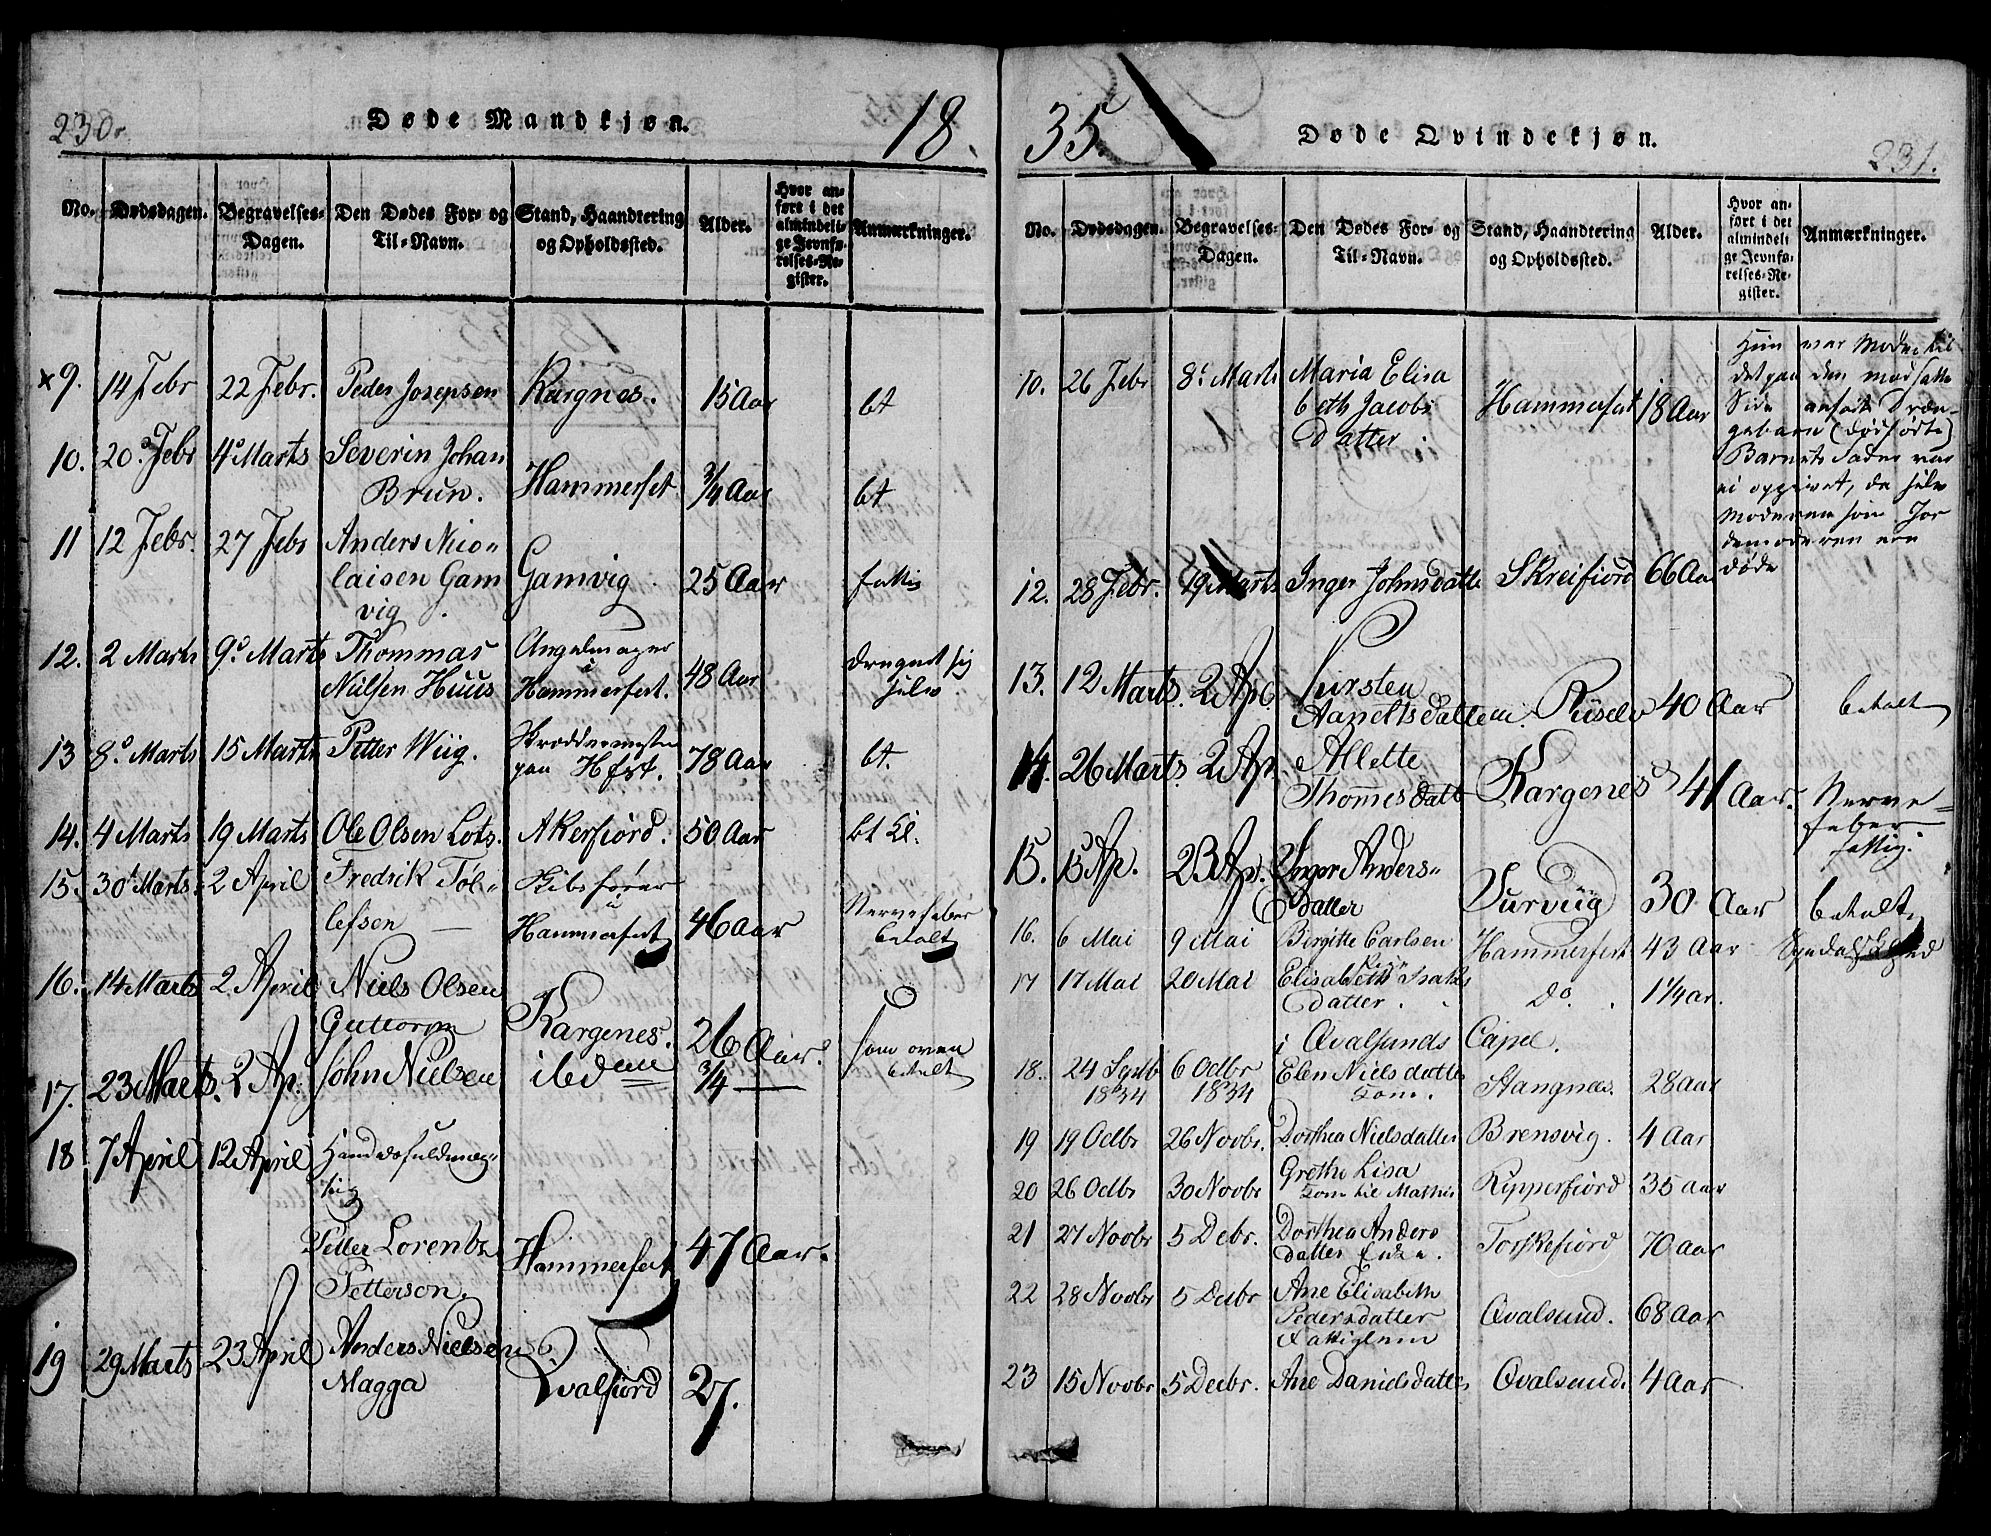 230.
Døde Mandkjøn.
18.
No.
Dødsdagen.
Begravelses-Dagen.
Den Dødes For- og Til-Navn.
Stand, Haandtering og Opholdssted.
Alder.
Hvor anført i det almindelige Jevnførelses-Register.
Anmærkninger.
x 9. 14 Febr 22 Febr. Peder Josepsen Kargnes. 15 Aar bt
10. 20 Febr 4 Marts Severin Johan Hammerfest 3/4 Aar bt
Brun.
11 12 Febr. 27 Febr Anders Nico= Gamvig 25 Aar fattig
laisen Gam
vig
12. 2 Marts 9 Marts Thommas Angelmager 48 Aar
Nielsen Huus i Hammerfest.
13 8 Marts 15 Marts Petter Wiig. Skreddermester 78 Aar bt.
paa Hfst.
14. 4 Marts 19 Marts Ole Olsen Lots. Akerfiord. 50 Aar bt
15. 30 Marts 2 April Fredrik Tøl= Skibsfører 46 Aar Nervefeber
lefsen i Hammerfest betalt
16. 14 Marts 2 April Niels Olsen Kargenes. 26 Aar. som oven
Guttorm betalt
17. 23 Marts. 2 Ap. John Nielsen ibidem 3/4
18 7 April 12 April Handelsfuldmæg=
tig
Petter Lorentz Hammerfest 47 Aar.
Petterson.
19 29 Marts 23 April Anders Nielsen Qvalfiord 27.
Magga
35
Døde Qvindekjøn.
231.
No.
Dødsdagen.
Begravelses-Dagen.
Den Dødes For- og Til-Navn.
Stand, Haandtering og Opholdssted.
Alder.
Hvor anført i det almindelige Jevnførelses-Register.
Anmærkninger.
10. 26 Febr 8 Marts Maria Elisa Hammerfest 18 Aar
beth Jacobs
datter
Hun var Moder til
det paa den modsatte
Side anførte Dren=
gebarn (dødfødte)
Barnets Fader var
ei opgivet, da selv
Moderen som Jor
demoderen ere
døde
12. 28 Febr. 19 Marts Inger Johnsdatter Skreifiord 66 Aar
13. 12 Marts. 2 Apl. Kirsten Riselv 40 Aar betalt
14. 26 Marts. 2 Ap. Allette Kargenes 41 Aar. Nerve=
Thomesdatter feber
fattig.
15. 15 Ap. 23 Ap. Inger Anders= Survüg 30 Aar betalt
datter
16. 6 Mai 9 Mai Birgitte Carlsen Hammerfest 43 Aar
17 17 Mai 20 Mai Elisabeth Isaks do. 1 1/4 ar.
datter.
i Qvalsunds Capel.
18. 24 Septb 6 Octbr Elen Nielsdatter Stangnæs. 28 Aar
1834 1834 Kone.
19 19 Octbr 26 Novbr. Dorthea Nielsdatter Brensvig. 4 Aar
20 26 Octbr 30 Novbr Grethe Lisa Ripperfiord 35 Aar
Kone til Mathis
21 27 Novbr 5 Decbr. Dorthea Anders Torskefiord 70 Aar
datter Enke.
22 28 Novbr 5 Decbr Ane Elisabeth Qvalsund. 68 Aar
Pedersdatter
Fattiglem
23 15 Novbr 5 Decbr. Ane Danielsdatter Qvalsund. 4 Aar